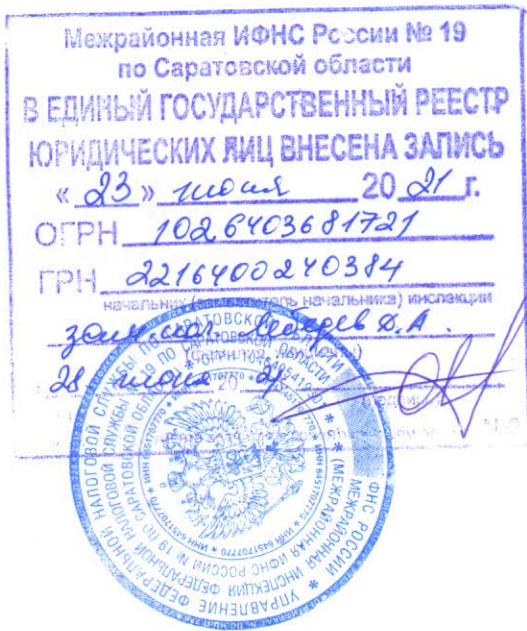 Межрайонная ИФНС России № 19
по Саратовской области
В ЕДИНЫЙ ГОСУДАРСТВЕННЫЙ РЕЕСТР
ЮРИДИЧЕСКИХ ЛИЦ ВНЕСЕНА ЗАПИСЬ
« 23 » июня 20 21 г.
ОГРН 1026403681721
ГРН 2216400240384
начальник (заместитель начальника) инспекции
зам нач Д.А.
28 июня 20 21
УПРАВЛЕНИЕ ФЕДЕРАЛЬНОЙ НАЛОГОВОЙ СЛУЖБЫ ПО САРАТОВСКОЙ ОБЛАСТИ
ФНС РОССИИ
МЕЖРАЙОННАЯ ИНСПЕКЦИЯ ФЕДЕРАЛЬНОЙ НАЛОГОВОЙ СЛУЖБЫ № 19 ПО САРАТОВСКОЙ ОБЛАСТИ
* МЕЖРАЙОННАЯ ИФНС РОССИИ № 19 ПО САРАТОВСКОЙ ОБЛАСТИ *
* ИНН 6451707770 * ИНН 6451707770 * ИНН 6451707770